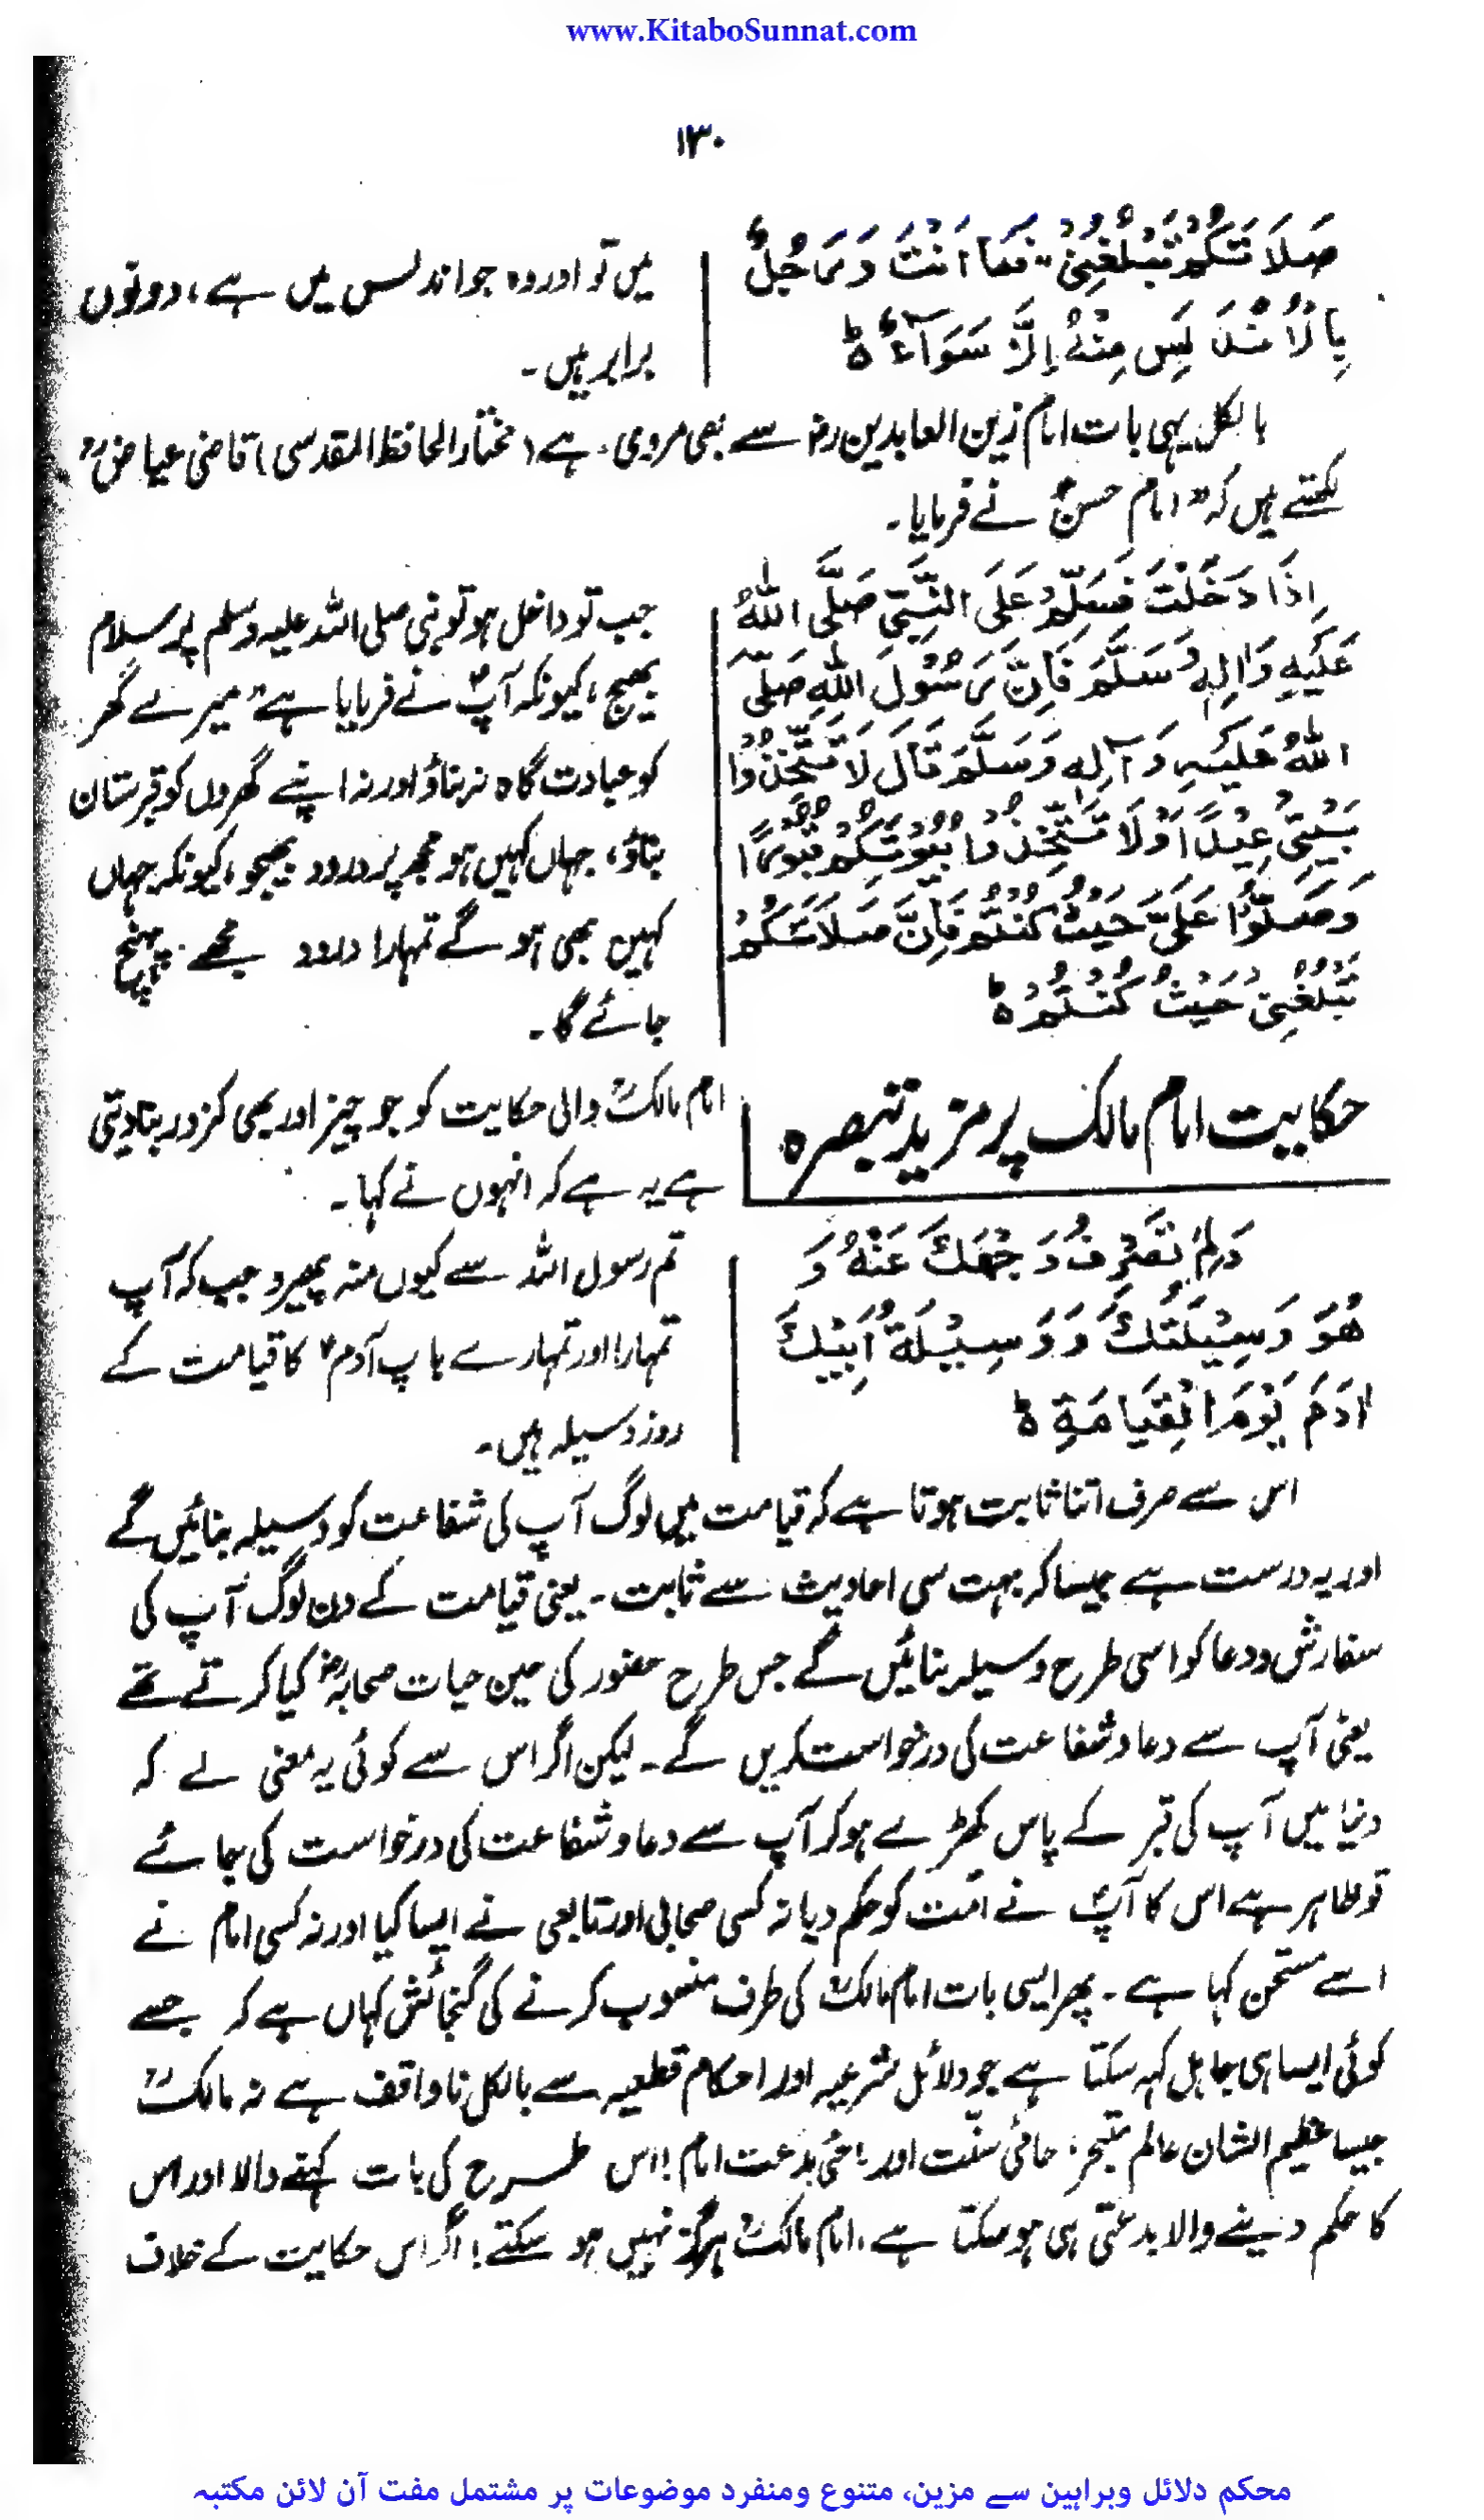 www.KitaboSunnat.com
۱۳۰
صَلَاتَكُمْ تَبْلُغُنِیْ" فَمَا اَنْتَ وَرَجُلٌ
بِالْاَنْدَلِسِ مِنْهُ اِلَّا سَوَآءٌ ہ
میں تو اور وہ جو اندلس میں ہے، دونوں
برابر ہیں۔
بالکل یہی بات امام زین العابدین رض سے بھی مروی ہے (مختار الحافظ المقدسی) قاضی عیاض رح
لکھتے ہیں کہ "امام حسن رض نے فرمایا۔
اِذَا دَخَلْتَ فَسَلِّمْ عَلَی النَّبِیِّ صَلَّی اللّٰهُ
عَلَیْهِ وَاٰلِهٖ وَسَلَّمَ فَاِنَّ رَسُوْلَ اللّٰهِ صَلَّی
اللّٰهُ عَلَیْهِ وَآلِهٖ وَسَلَّمَ قَالَ لَا تَتَّخِذُوْا
بَیْتِیْ عِیْدًا وَلَا تَتَّخِذُوْا بُیُوْتَکُمْ قُبُوْرًا
وَصَلُّوْا عَلَیَّ حَیْثُ کُنْتُمْ فَاِنَّ صَلَاتَکُمْ
تَبْلُغُنِیْ حَیْثُ کُنْتُمْ ہ
جب تو داخل ہو تو نبی صلی اللہ علیہ وسلم پر سلام
بھیج، کیونکہ آپؐ نے فرمایا ہے "میرے گھر
کو عبادت گاہ نہ بناؤ اور نہ اپنے گھروں کو قبرستان
بناؤ، جہاں کہیں ہو مجھ پر درود بھیجو، کیونکہ جہاں
کہیں بھی ہو گے تمہارا درود مجھے پہنچ
جائے گا۔
حکایت امام مالک پر مزید تبصرہ
امام مالکؒ والی حکایت کو جو چیز اور بھی کمزور بنا دیتی
ہے یہ ہے کہ انہوں نے کہا۔
وَلِمَ تَصْرِفُ وَجْهَكَ عَنْهُ وَ
هُوَ وَسِیْلَتُكَ وَوَسِیْلَةُ اَبِیْكَ
اٰدَمَ یَوْمَ الْقِیَامَةِ ہ
تم رسول اللہ سے کیوں منہ پھیرو جب کہ آپ
تمہارا اور تمہارے باپ آدمؑ کا قیامت کے
روز وسیلہ ہیں۔
اس سے صرف اتنا ثابت ہوتا ہے کہ قیامت میں لوگ آپ کی شفاعت کو وسیلہ بنائیں گے
اور یہ درست ہے جیسا کہ بہت سی احادیث سے ثابت۔ یعنی قیامت کے دن لوگ آپ کی
سفارش و دعا کو اسی طرح وسیلہ بنائیں گے جس طرح حضور کی حین حیات صحابہ رض کیا کرتے تھے
یعنی آپ سے دعا و شفاعت کی درخواست کریں گے۔ لیکن اگر اس سے کوئی یہ معنی لے کہ
دنیا میں آپ کی قبر کے پاس کھڑے ہوکر آپ سے دعا و شفاعت کی درخواست کی جائے
تو ظاہر ہے اس کا آپؐ نے امت کو حکم دیا نہ کسی صحابی اور تابعی نے ایسا کیا اور نہ کسی امام نے
اسے مستحسن کہا ہے۔ پھر ایسی بات امام مالکؒ کی طرف منسوب کرنے کی گنجائش کہاں ہے کہ جسے
کوئی ایسا ہی جاہل کہہ سکتا ہے جو دلائل شرعیہ اور احکام قطعیہ سے بالکل ناواقف ہے نہ مالکؒ
جیسا عظیم الشان عالم متبحر، حامئ سنّت اور ماحئ بدعت امام! اس طرح کی بات کہنے والا اور اس
کا حکم دینے والا بدعتی ہی ہو سکتا ہے، امام مالکؒ ہرگز نہیں ہو سکتے! اگر اس حکایت کے خلاف
محکم دلائل وبراہین سے مزین، متنوع ومنفرد موضوعات پر مشتمل مفت آن لائن مکتبہ